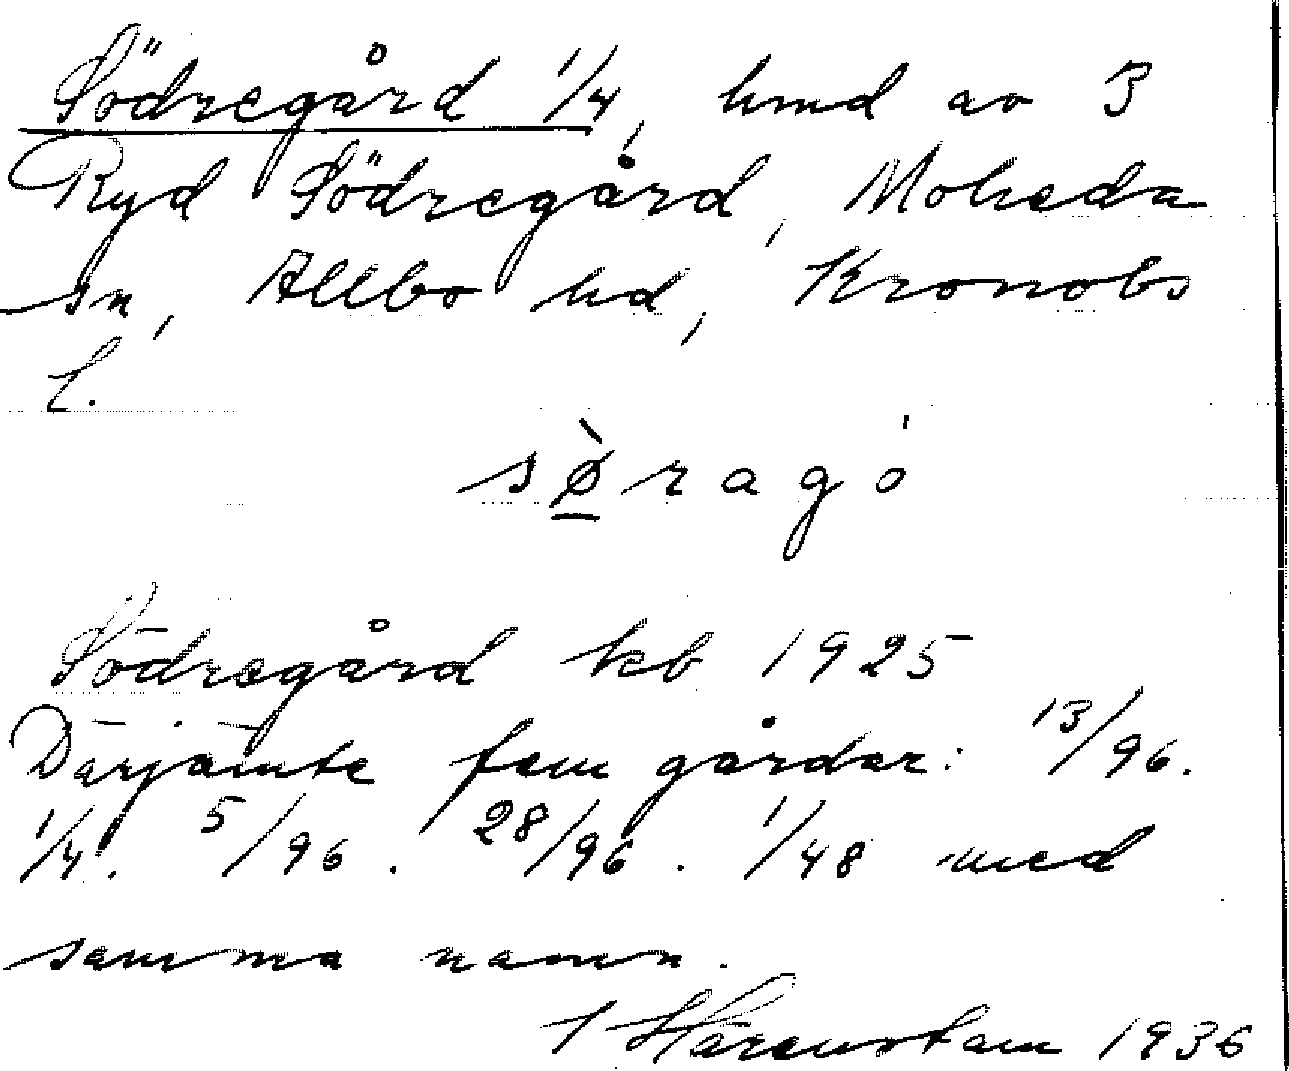 Södregård 1/4, hmd av 3
Ryd Södregård, Moheda
sn, Allbo hd, Kronobs
l.
sø̀ragó
Södregård kb 1925
Därjämte fem gårdar: 13/96.
1/4. 5/96. 28/96. 1/48 med
samma namn.
I Härenstam 1936